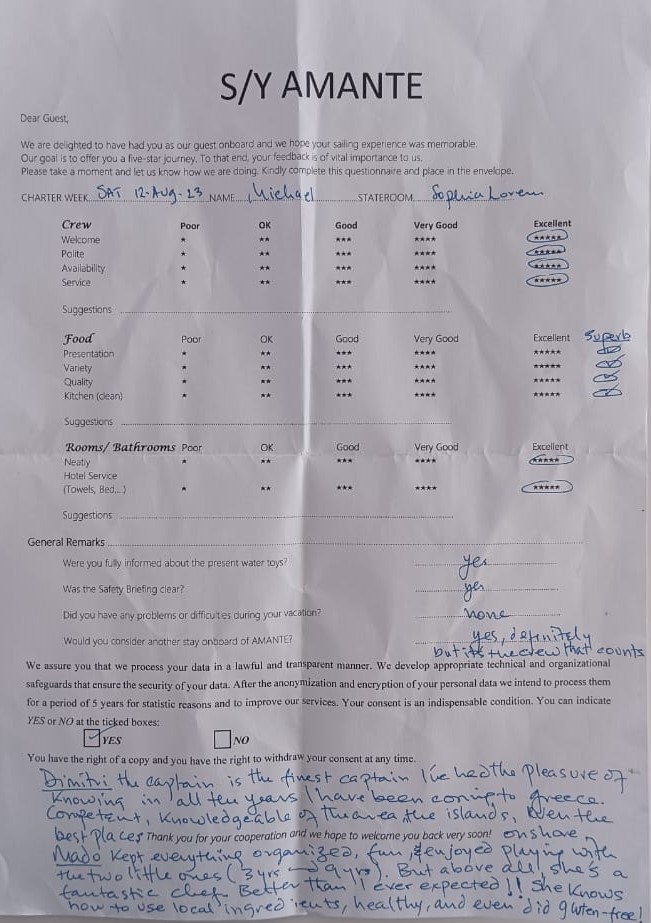 S/Y AMANTE
Dear Guest,
We are delighted to have had you as our guest onboard and we hope your sailing experience was memorable.
Our goal is to offer you a five-star journey. To that end, your feedback is of vital importance to us.
Please take a moment and let us know how we are doing. Kindly complete this questionnaire and place in the envelope.
CHARTER WEEK SAT 12-AUG-23 NAME Michael STATEROOM Sophia Loren
Crew Poor OK Good Very Good Excellent
Welcome * ** *** **** *****
Polite * ** *** **** *****
Availability * ** *** **** *****
Service * ** *** **** *****
Suggestions
Food Poor OK Good Very Good Excellent Superb
Presentation * ** *** **** *****
Variety * ** *** **** *****
Quality * ** *** **** *****
Kitchen (clean) * ** *** **** *****
Suggestions
Rooms/ Bathrooms Poor OK Good Very Good Excellent
Neatly * ** *** **** *****
Hotel Service
(Towels, Bed,...) * ** *** **** *****
Suggestions
General Remarks
Were you fully informed about the present water toys? yes
Was the Safety Briefing clear? yes
Did you have any problems or difficulties during your vacation? none
Would you consider another stay onboard of AMANTE? yes, definitely
but its the crew that counts
We assure you that we process your data in a lawful and transparent manner. We develop appropriate technical and organizational
safeguards that ensure the security of your data. After the anonymization and encryption of your personal data we intend to process them
for a period of 5 years for statistic reasons and to improve our services. Your consent is an indispensable condition. You can indicate
YES or NO at the ticked boxes:
YES NO
You have the right of a copy and you have the right to withdraw your consent at any time.
Dimitri the captain is the finest captain I've had the pleasure of
knowing in all ten years I have been coming to Greece.
Competent, knowledgeable of the area, the islands, even the
best places Thank you for your cooperation and we hope to welcome you back very soon! onshore
Mado kept everything organized, fun, & enjoyed playing with
the two little ones (3yrs → 9yrs). But above all, she's a
fantastic chef. Better than I ever expected!! She knows
how to use local ingredients, healthy, and even did gluten-free!